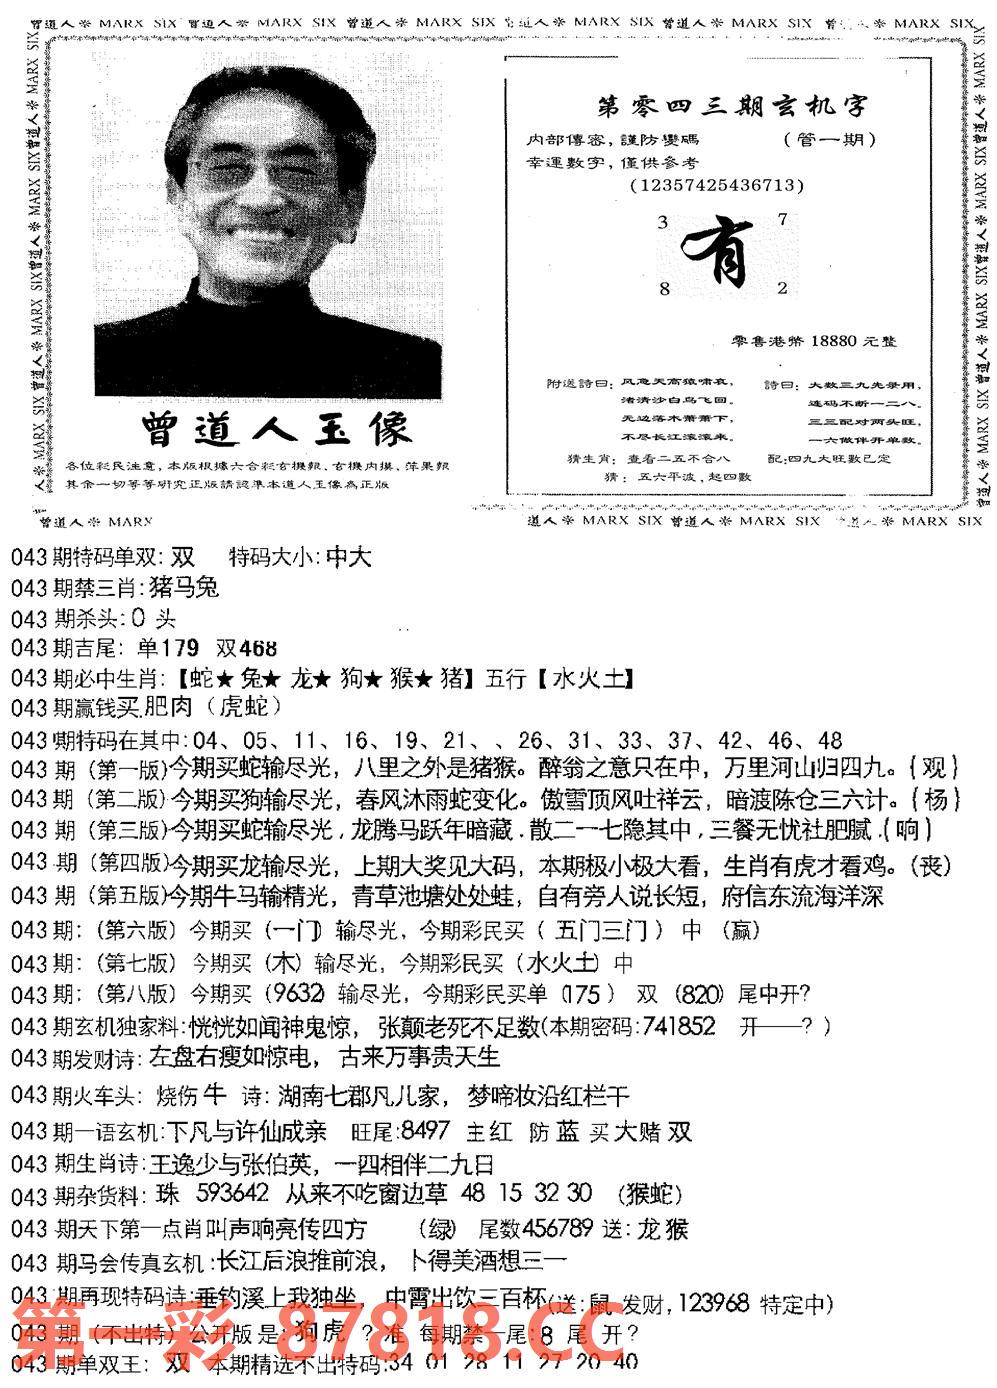 曾道人※ MARX SIX 曾道人※ MARX SIX 曾道人※ MARX SIX 曾道人※ MARX SIX 曾道人※ MARX SIX 曾道人※ MARX SIX
第零四三期玄机字
内部傳密，謹防變碼 （管一期）
幸運數字，僅供參考
(12357425436713)
3 7
有
8 2
零售港幣 18880 元整
附送詩曰：风急天高猿啸哀，
渚清沙白鸟飞回。
无边落木萧萧下，
不尽长江滚滚来。
詩曰：大数三九先录用，
连码不断一二八。
三三配对两头旺，
一六做伴开单数。
猜生肖：查看二五不合八 配:四九大旺數已定
猜：五六平波，起四數
曾道人玉像
各位彩民注意，本版根據六合彩玄機報、玄機内摸、萍果報
其余一切等等研究正版請認準本道人玉像為正版
曾道人※ MARX
道人※ MARX SIX 曾道人※ MARX SIX 曾道人※ MARX SIX
043 期特码单双: 双 特码大小:中大
043 期禁三肖:猪马兔
043 期杀头:0 头
043 期吉尾: 单179 双468
043 期必中生肖:【蛇★兔★ 龙★ 狗★猴★猪】五行【水火土】
043 期赢钱买.肥肉（虎蛇）
043 期特码在其中:04、05、11、16、19、21、、26、31、33、37、42、46、48
043 期（第一版)今期买蛇输尽光，八里之外是猪猴。醉翁之意只在中，万里河山归四九。{观}
043 期（第二版)今期买狗输尽光，春风沐雨蛇变化。傲雪顶风吐祥云，暗渡陈仓三六计。{杨}
043 期（第三版)今期买蛇输尽光,龙腾马跃年暗藏.散二一七隐其中,三餐无忧社肥腻.{响}
043 期（第四版)今期买龙输尽光，上期大奖见大码，本期极小极大看，生肖有虎才看鸡。(丧)
043 期（第五版)今期牛马输精光，青草池塘处处蛙，自有旁人说长短，府信东流海洋深
043 期:（第六版）今期买（一门）输尽光，今期彩民买（ 五门三门 ） 中 （赢）
043 期:（第七版）今期买（木）输尽光，今期彩民买（水火土）中
043 期:（第八版）今期买（9632）输尽光，今期彩民买单（175 ） 双 （820）尾中开?
043 期玄机独家料:恍恍如闻神鬼惊， 张颠老死不足数(本期密码:741852 开——? )
043 期发财诗:左盘右瘦如惊电， 古来万事贵天生
043 期火车头: 烧伤 牛 诗: 湖南七郡凡儿家， 梦啼妆沿红栏干
043 期一语玄机:下凡与许仙成亲 旺尾:8497 主 红 防 蓝 买 大赌 双
043 期生肖诗:王逸少与张伯英，一四相伴二九日
043 期杂货料: 珠 593642 从来不吃窗边草 48 15 32 30 （猴蛇）
043 期天下第一点肖叫声响亮传四方 （绿） 尾数456789 送:龙猴
043 期马会传真玄机:长江后浪推前浪， 卜得美酒想三一
043 期再现特码诗:垂钓溪上我独坐， 中霄出饮三百杯(送:鼠 发财,123968 特定中)
043 期（不出特）公开版 是: 狗虎 ？准 每期禁一尾:8 尾 开？
043 期单双王: 双 本期精选不出特码:34 01 28 11 27 20 40
第一彩 87818.CC